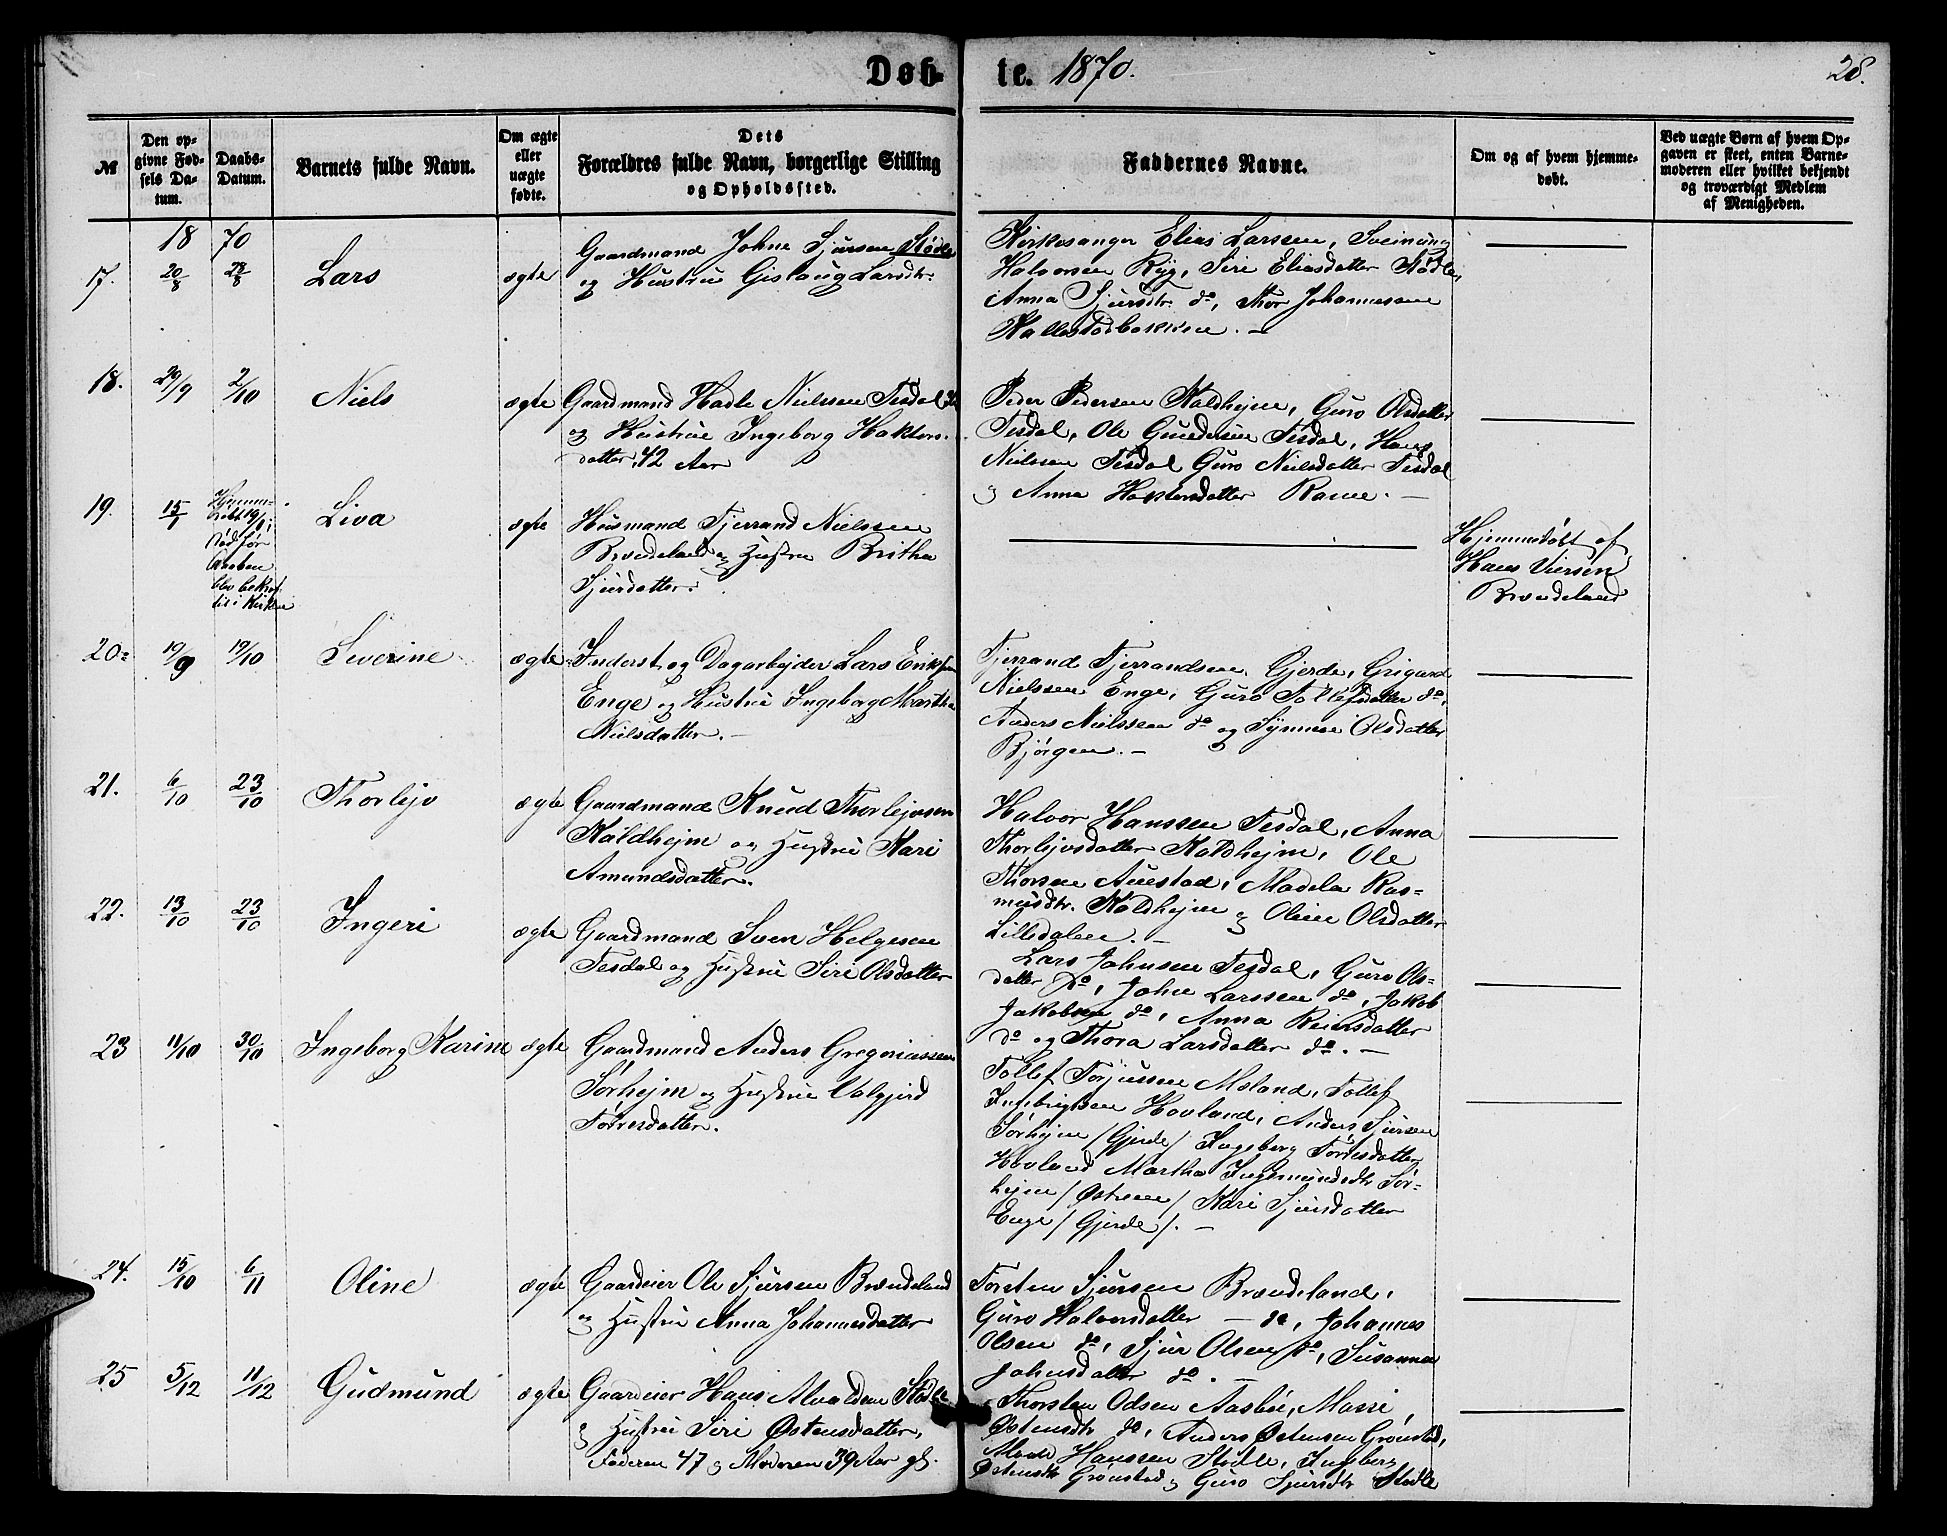 Døb-
te. 1870.
28.
№
Den op-
givne Fød-
sels Da-
tum.
Daabs-
Datum.
Barnets fulde Navn.
Om ægte
eller
uægte
fødte.
Dets
Forældres fulde Navn, borgerlige Stilling
og Opholdssted.
Faddernes Navne.
Om og af hvem hjemme-
døbt.
Ved uægte Børn af hvem Op-
gaven er skeet, enten Barne-
moderen eller hvilket bekjendt
og troværdigt Medlem
af Menigheden.
18 70
17. 20/8 28/8 Lars ægte
Gaardmand Johne Sjursen Stødle
og Hustrue Gislaug Larsdtr.
Kirkesanger Elias Larssen, Sveinung
Halvorsen Ryg, Siri Eliasdatter Stødle,
Anna Sjursdtr. do, Thor Johannessen
18. 29/9 2/10 Niels ægte
Gaardmand Hadle Nielssen Tesdal
og Hustrue Ingeborg Haktors-
datter, 42 Aar
Peder Pedersen Kaldhejm, Guro Olsdatter
Tesdal, Ole Gundersen Tesdal, Hans
Nielssen Tesdal Guro Nielsdatter Tesdal
og Anna Rame. —
19. 15/1 Hjemme-
døbt 19/1;
død før
Daaben
blev bekræf-
tet i Kirken
Liva ægte
Husmand Tjerrand Nielssen
Brændeland og Hustrue Britha
Sjursdatter.
Hjemmedøbt af
Hans
Brændeland
20. 19/9 19/10 Severine ægte
Inderst og Dagarbejder Lars Eriksen
Enge og Hustrue Ingeborg Martha
Nielsdatter. —
Tjerrand Tjerrandsen Gjerde, Grigard
Nielssen Enge, Guro Tollefsdatter do,
Anders Nielssen do og Synneve Olsdatter
Bjørgen. —
21. 6/10 23/10 Thorlejv ægte
Gaardmand Knud Thorlejvsen
Kaldhejm og Hustrue Kari
Amundsdatter.
Halvor Hanssen Tesdal, Anna
Thorlejvsdatter Kaldhejm, Ole
Thorsen Austad, Madela Ras-
musdtr. Kaldhejm og Oline Olsdatter
Lillsdalen. —
22. 13/10 23/10 Ingeri ægte
Gaardmand Sven Helgesen
Tesdal og Hustrue Siri Olsdatter
Lars Johnsen Tesdal, Guro Ols-
datter do, John Larssen do, Jakob
Jakobsen do, Anna Reiersdatter
do og Thora Larsdatter do. —
23 11/10 30/10 Ingeborg Karine ægte
Gaardmand Anders Gregoriussen
Sørhejm og Hustrue Valgjerd
Tørresdatter.
Tollef Torjussen Moland, Tollef
Ingebrigtsen Hovland, Anders Sjursen
Sørhejm /Gjerde/ Ingeborg Tørresdatter
Hovland Martha Ingemundsdtr Sør-
hejm /Østreen/ Kari Sjursdatter
Enge /Gjerde/. —
24. 15/10 6/11 Oline ægte
Gaardeier Ole Sjursen Brændeland
og Hustrue Anna Johannesdatter
Torsten Sjursen Brændeland,
Guro Halvorsdatter — do, Johannes
Olsen do, Sjur Olsen do, Susanna
Johnsdatter do. —
25 5/12 11/12 Gudmund ægte
Gaardeier Hans Alvaldsen Stødle
og Hustrue Siri Østensdatter,
Faderen 47 og Moderen 39 Aar gl.
Thorsten Odsen Aasbøe, Massi
Østensdtr do, Anders Østensen Grønstad,
Hanssen Stødle, Ingeborg
Østensdtr Grønstad og Guro Sjursdtr Stødle